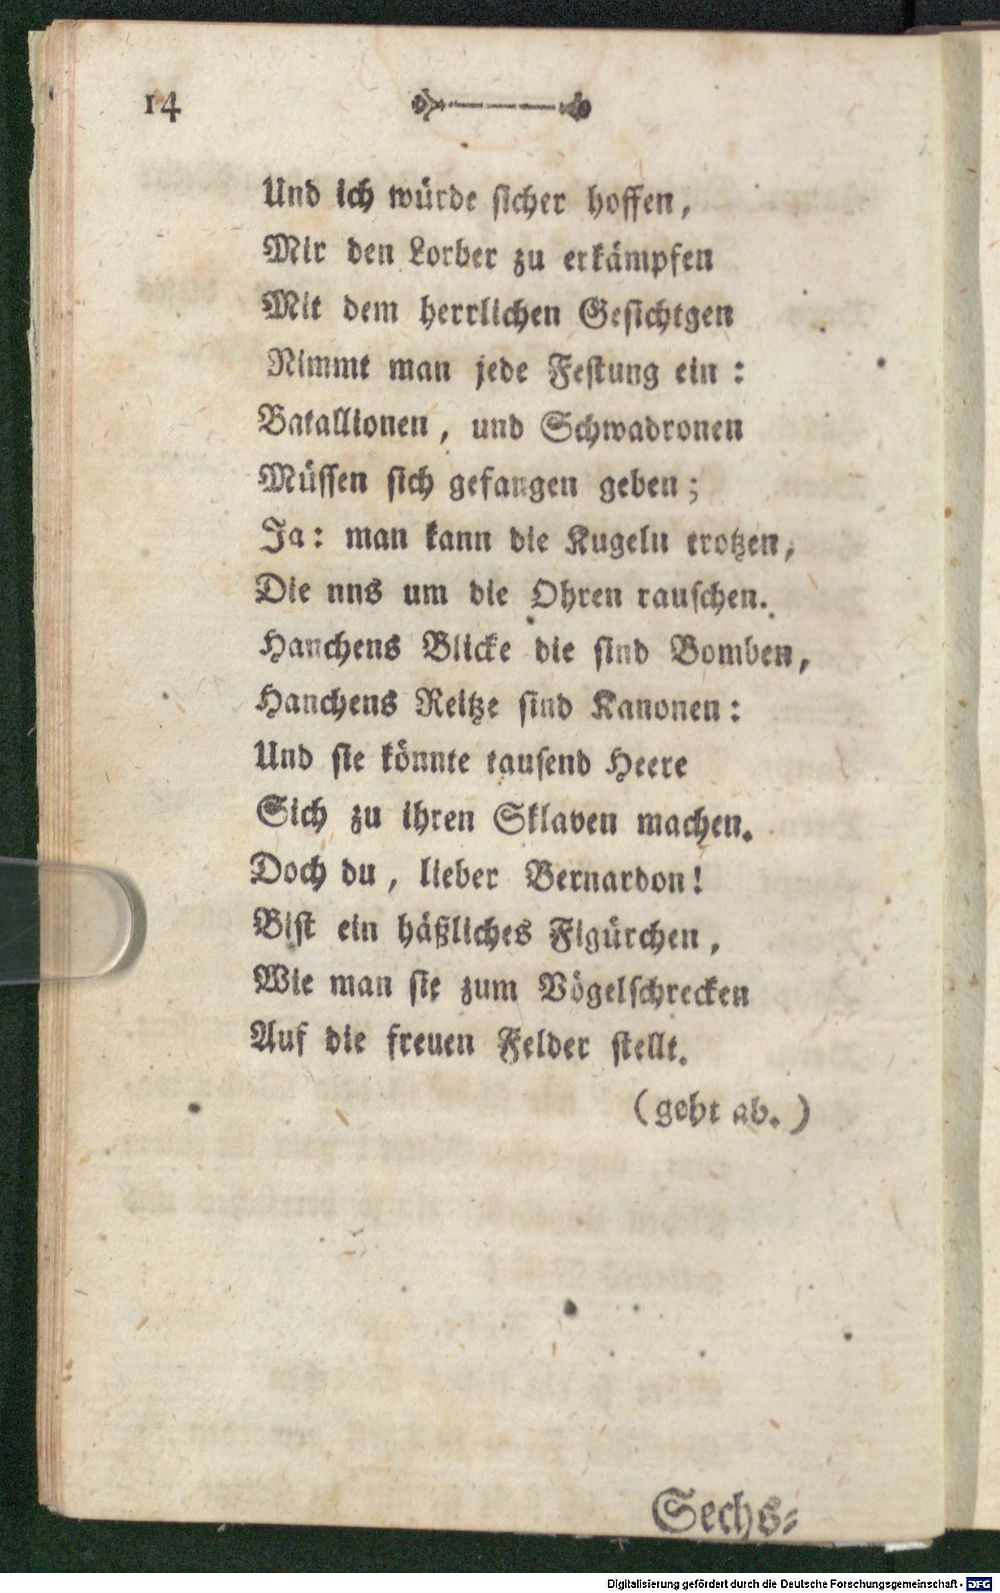 14
Und ich würde sicher hoffen,
Mir den Lorber zu erkämpfen
Mit dem herrlichen Gesichtgen
Nimmt man jede Festung ein:
Batallionen, und Schwadronen
Müssen sich gefangen geben;
Ja: man kann die Kugeln trotzen,
Die nns um die Ohren rauschen.
Hanchens Blicke die sind Bomben,
Hanchens Reitze sind Kanonen:
Und sie könnte tausend Heere
Sich zu ihren Sklaven machen.
Doch du, lieber Bernardon!
Bist ein häßliches Figürchen,
Wie man sie zum Vögelschrecken
Auf die freuen Felder stellt.
(geht ab.)
Sechs-
Digitalisierung gefördert durch die Deutsche Forschungsgemeinschaft - DFG